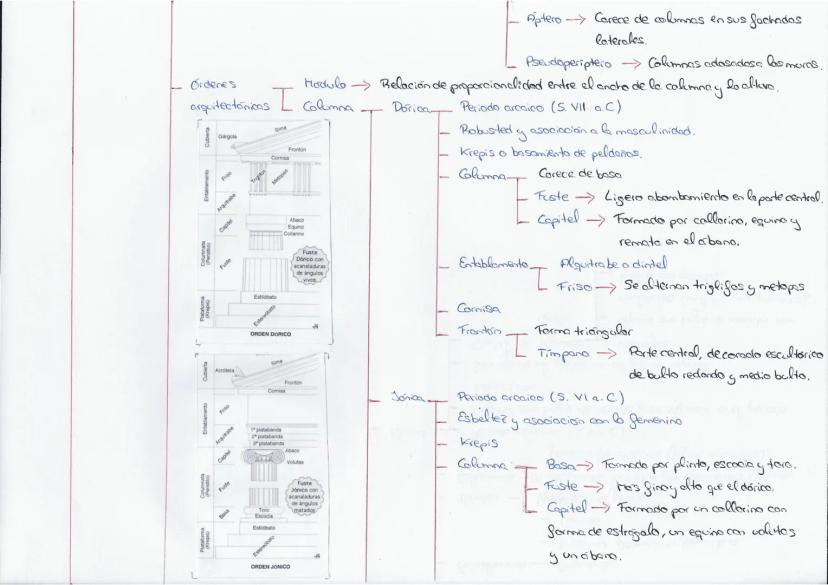 Áptero → Carece de columnas en sus fachadas
laterales.
Pseudoperiptero → Columnas adosadas a los muros.
Órdenes
arquitectónicos
Modulo → Relación de proporcionalidad entre el ancho de la columna y la altura.
Columna
Dórica
Periodo arcaico (S. VII a.C)
Robusted y asociación a la masculinidad.
Krepis o basamento de peldaños.
Columna
Carece de basa
Fuste → Ligero abombamiento en la parte central.
Capitel → Formado por collarino, equino y
remata en el ábano.
Entablamento
Alquitrabe o dintel
Friso → Se alternan triglifos y metopas
Cornisa
Frontón
Forma triangular
Tímpano → Parte central, decorado escultórico
de bulto redondo y medio bulto.
Cubierta
Gárgola
Sima
Frontón
Cornisa
Entablamento
Friso
Triglifos
Metopas
Arquitrabe
Columnata
(Peristilo)
Capitel
Abaco
Equino
Collarino
Fuste
Fuste
Dórico con
acanaladuras
de ángulos
vivos
Plataforma
(Krepis)
Estilóbato
Estereóbato
ORDEN DÓRICO
Jónica
Periodo arcaico (S. VI a. C)
Esbeltez y asociacion con lo femenino
Krepis
Columna
Basa → Formada por plinto, escocia y toro.
Fuste → Mas fino y alto que el dórico.
Capitel → Formado por un collarino con
forma de estrágalo, un equino con volutas
y un ábano.
Cubierta
Acrótera
Sima
Frontón
Cornisa
Entablamento
Friso
Arquitrabe
1ª platabanda
2ª platabanda
3ª platabanda
Columnata
(Peristilo)
Capitel
Abaco
Volutas
Fuste
Fuste
Jónico con
acanaladuras
de ángulos
matados
Basa
Toro
Escocia
Plataforma
(Krepis)
Estilóbato
Estereóbato
ORDEN JÓNICO